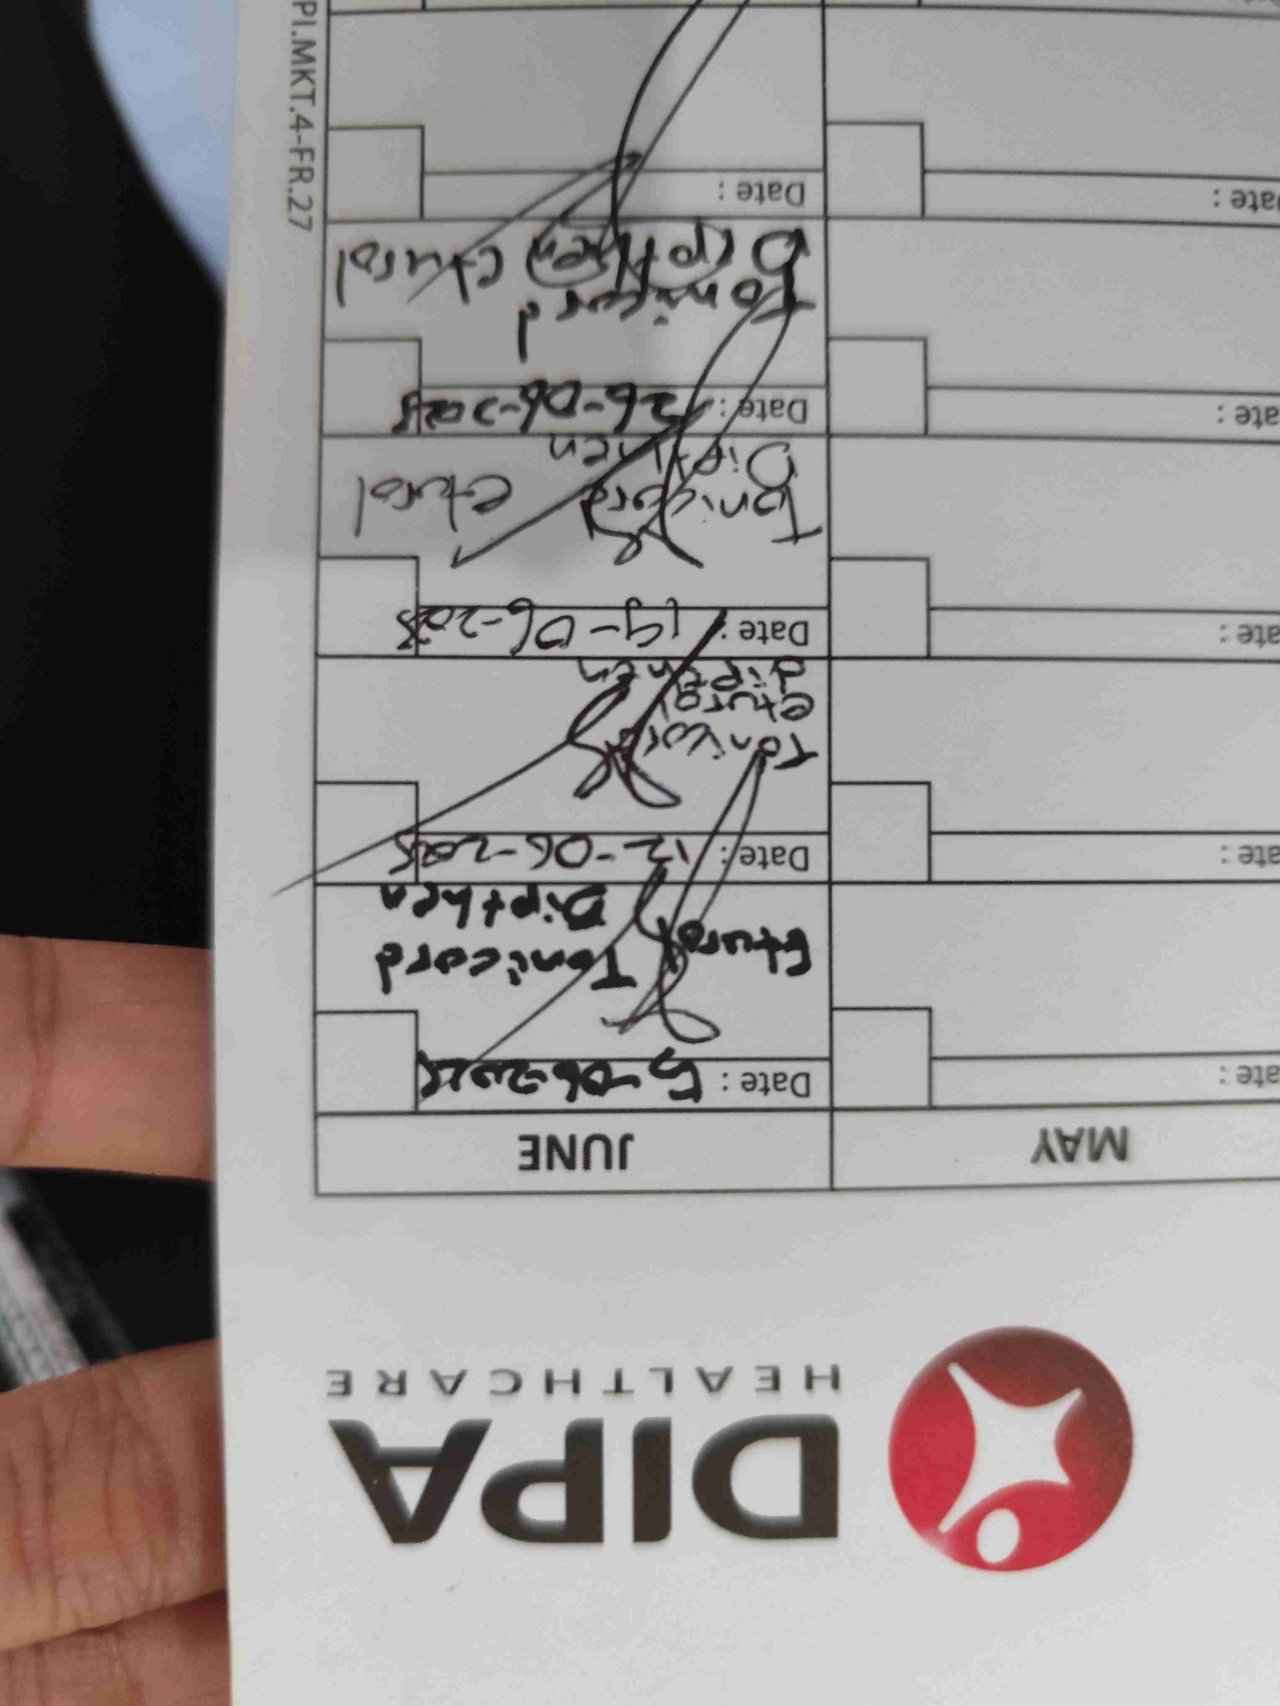 DIPA
HEALTHCARE
MAY
JUNE
Date :
Date : 5-06-2025
Etural Tonicard
Dipthen
Date :
Date : 12-06-2025
Tonicard
etural
dipthen
Date :
Date : 19-06-2025
Tonicard etural
Dipthen
Date :
Date : 26-06-2025
Tonicard
Dipthen etural
Date :
Date :
PI.MKT.4-FR.27